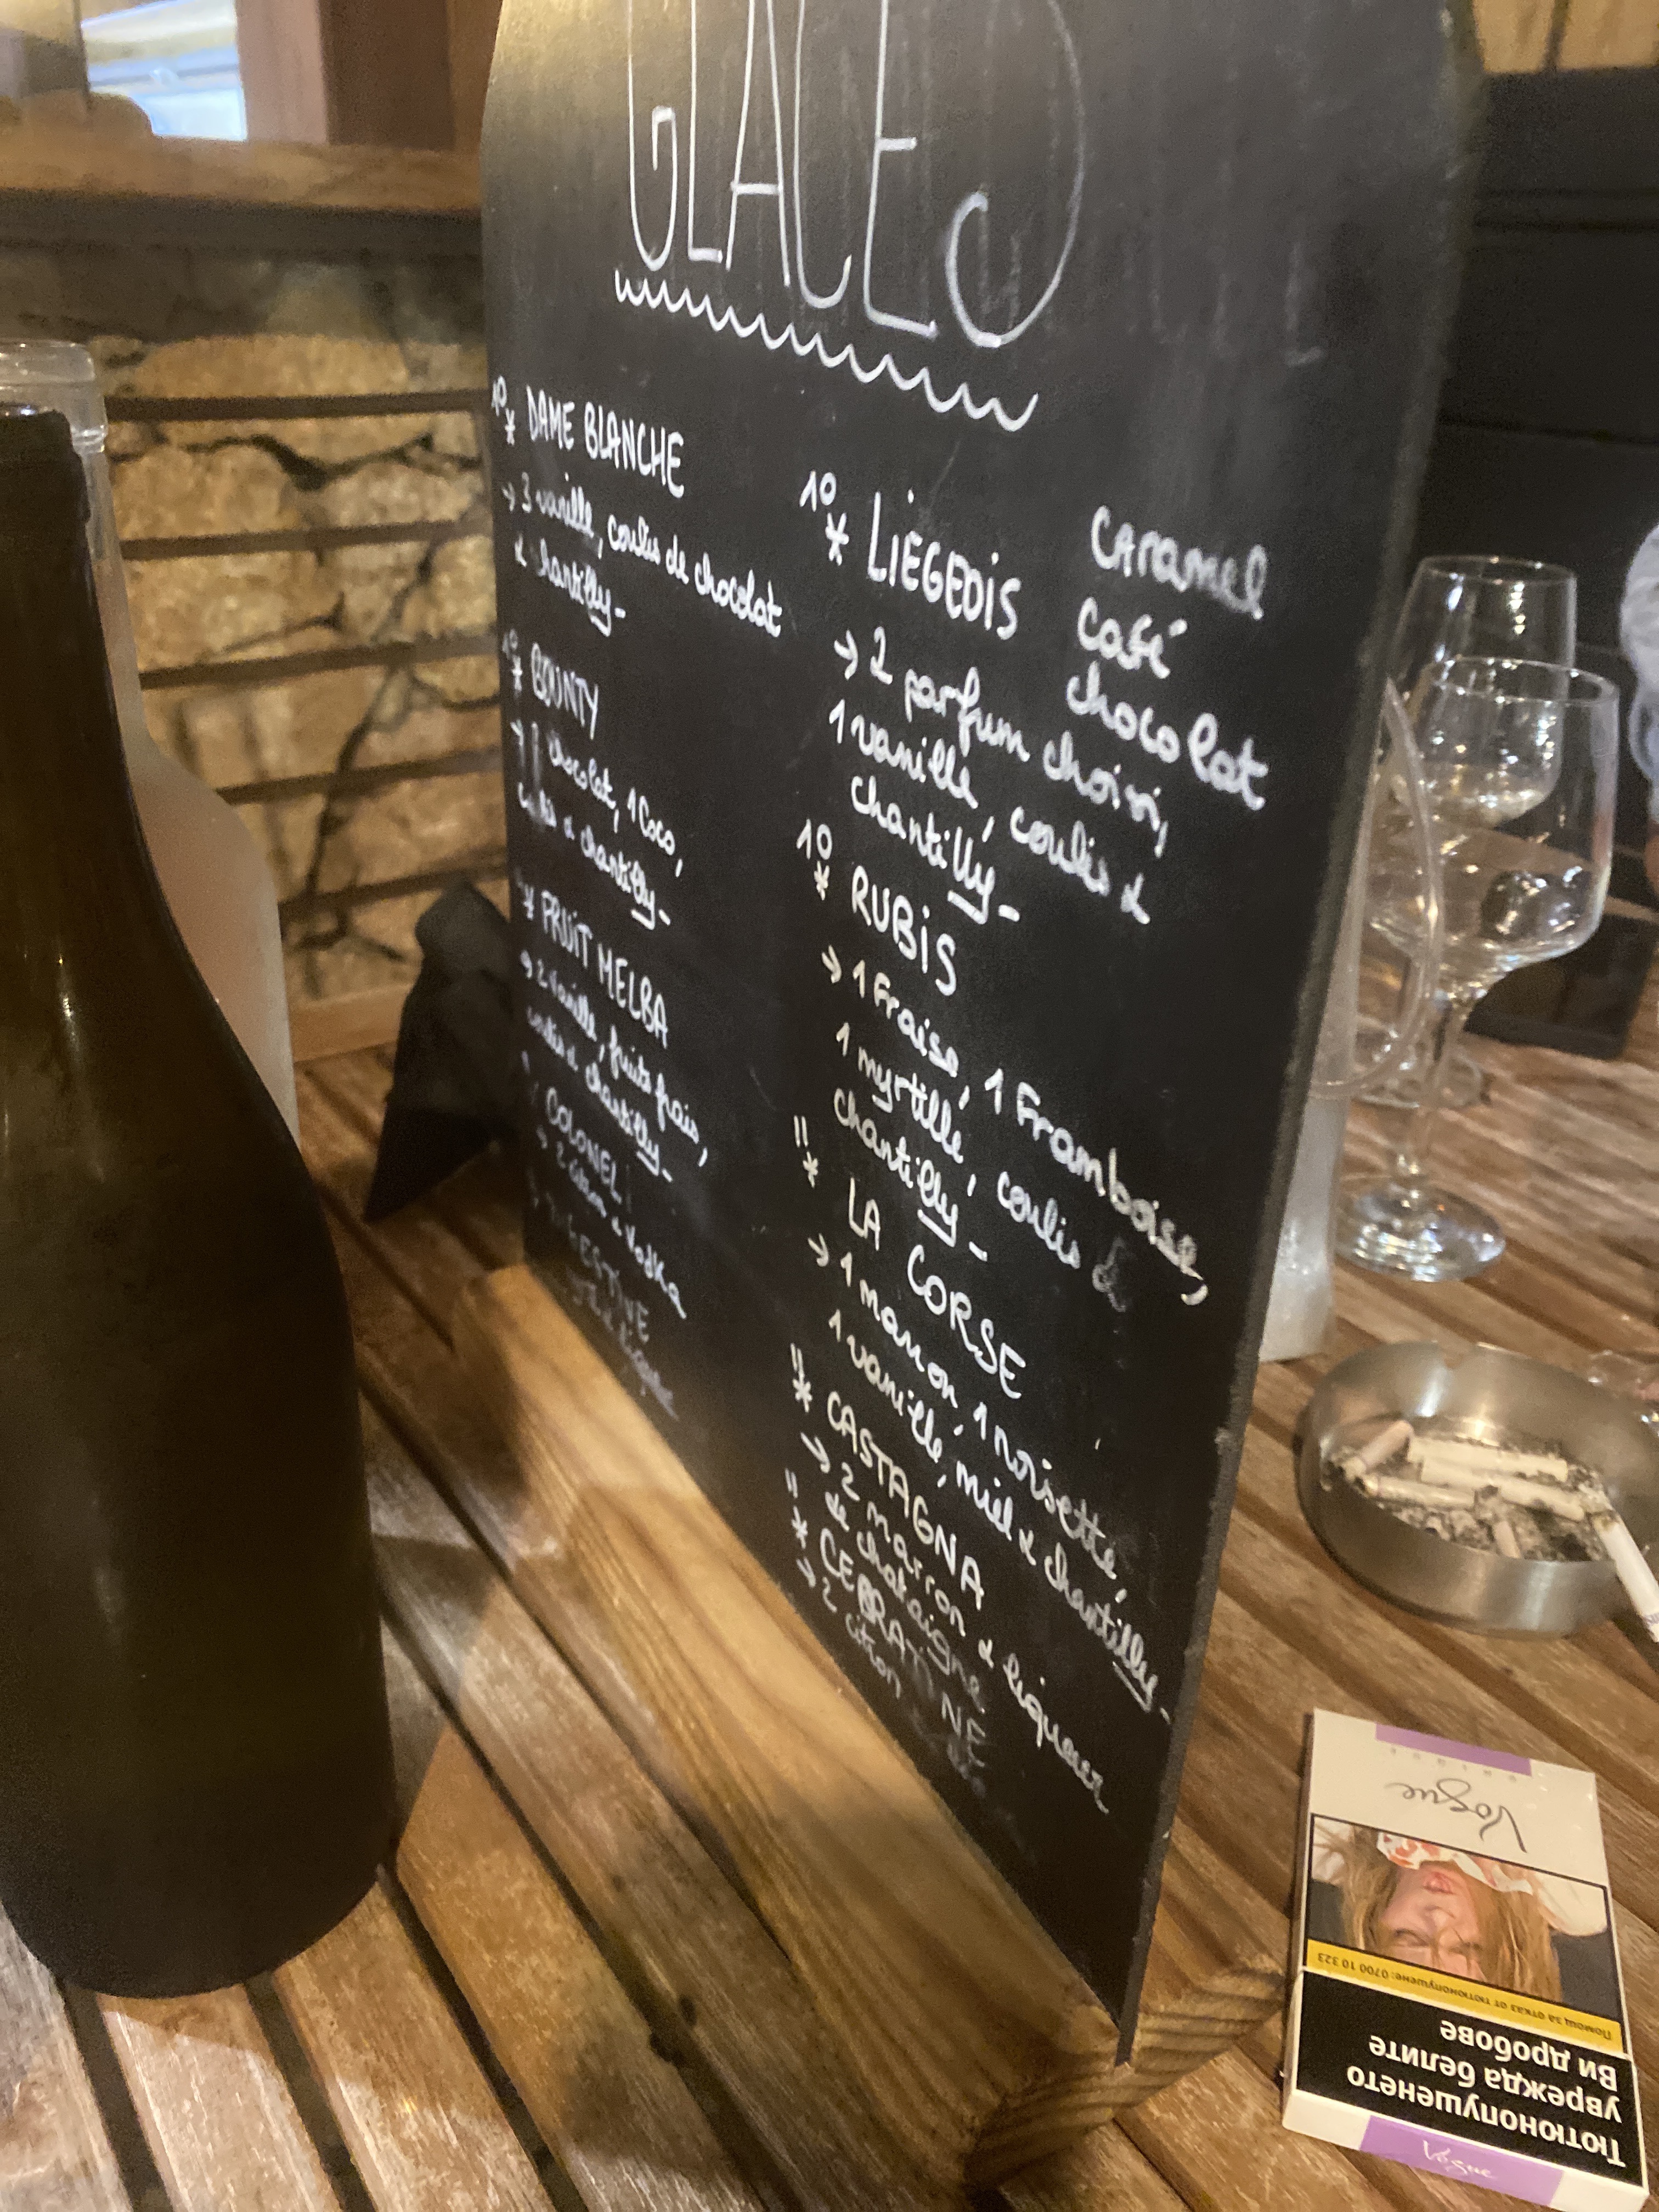 GLACES
10 * DAME BLANCHE
→ 3 vanille, coulis de chocolat
& chantilly-
* BOUNTY
→ 1 chocolat, 1 Coco,
& chantilly-
* FRUIT MELBA
→ 2 vanille, fruits frais,
coulis & chantilly-
COLONEL
→ 2 citron & Vodka
10 * LIEGEOIS
caramel
café
chocolat
→ 2 parfum choisi,
1 vanille, coulis &
chantilly-
10 * RUBIS
→ 1 Fraise, 1 Framboise,
1 myrtille, coulis &
chantilly-
11 * LA CORSE
→ 1 marron, 1 noisette,
1 vanille, miel & chantilly-
11 * CASTAGNA
→ 2 marron & liqueur
de chataigne
11 * CEDRATINE
→ 2 citron
Vogue
Помощ за отказ от тютюнопушене: 0700 10 323
Тютюнопушенето
уврежда белите
Ви дробове
Vogue